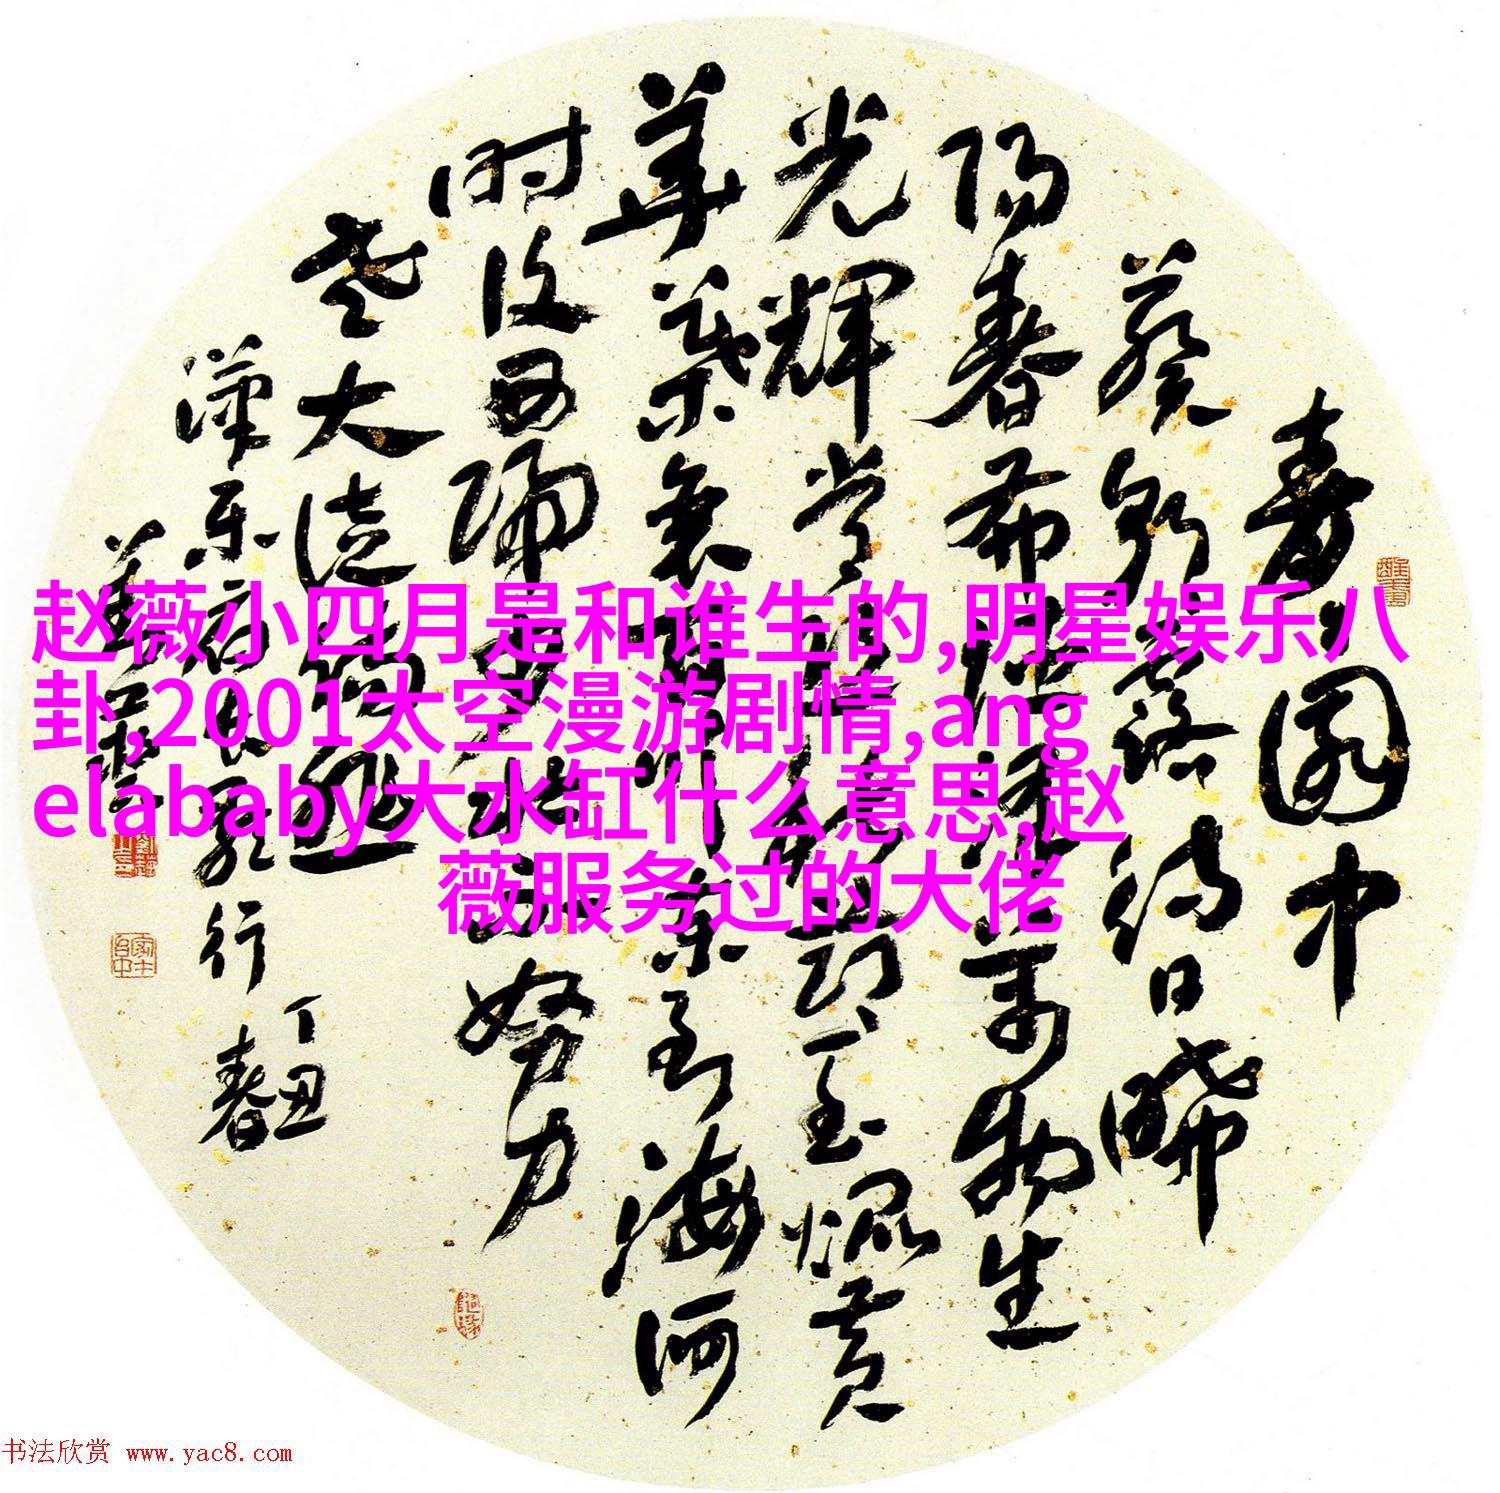 青〻園中
葵朝露待日晞
陽春布德澤萬物生
光輝常恐秋節至焜黄
華葉衰百川東到海何
时復西歸少壮不努力
老大徒傷悲
漢樂府長歌行 丁丑春
赵薇小四月是和谁生的,明星娱乐八
卦,2001太空漫游剧情,ang
elababy大水缸什么意思,赵
薇服务过的大佬
书法欣赏 www.yac8.com